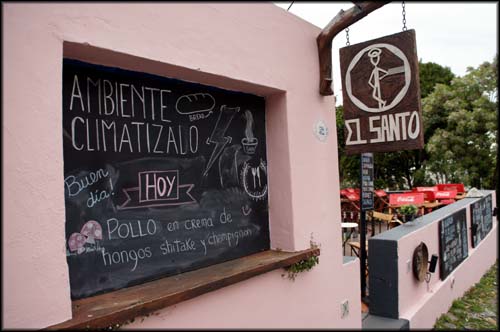 AMBIENTE
CLIMATIZALO
BREAD
Buen
día!
HOY
POLLO en crema de
hongos shitake y champignon
EL SANTO
Coca-Cola